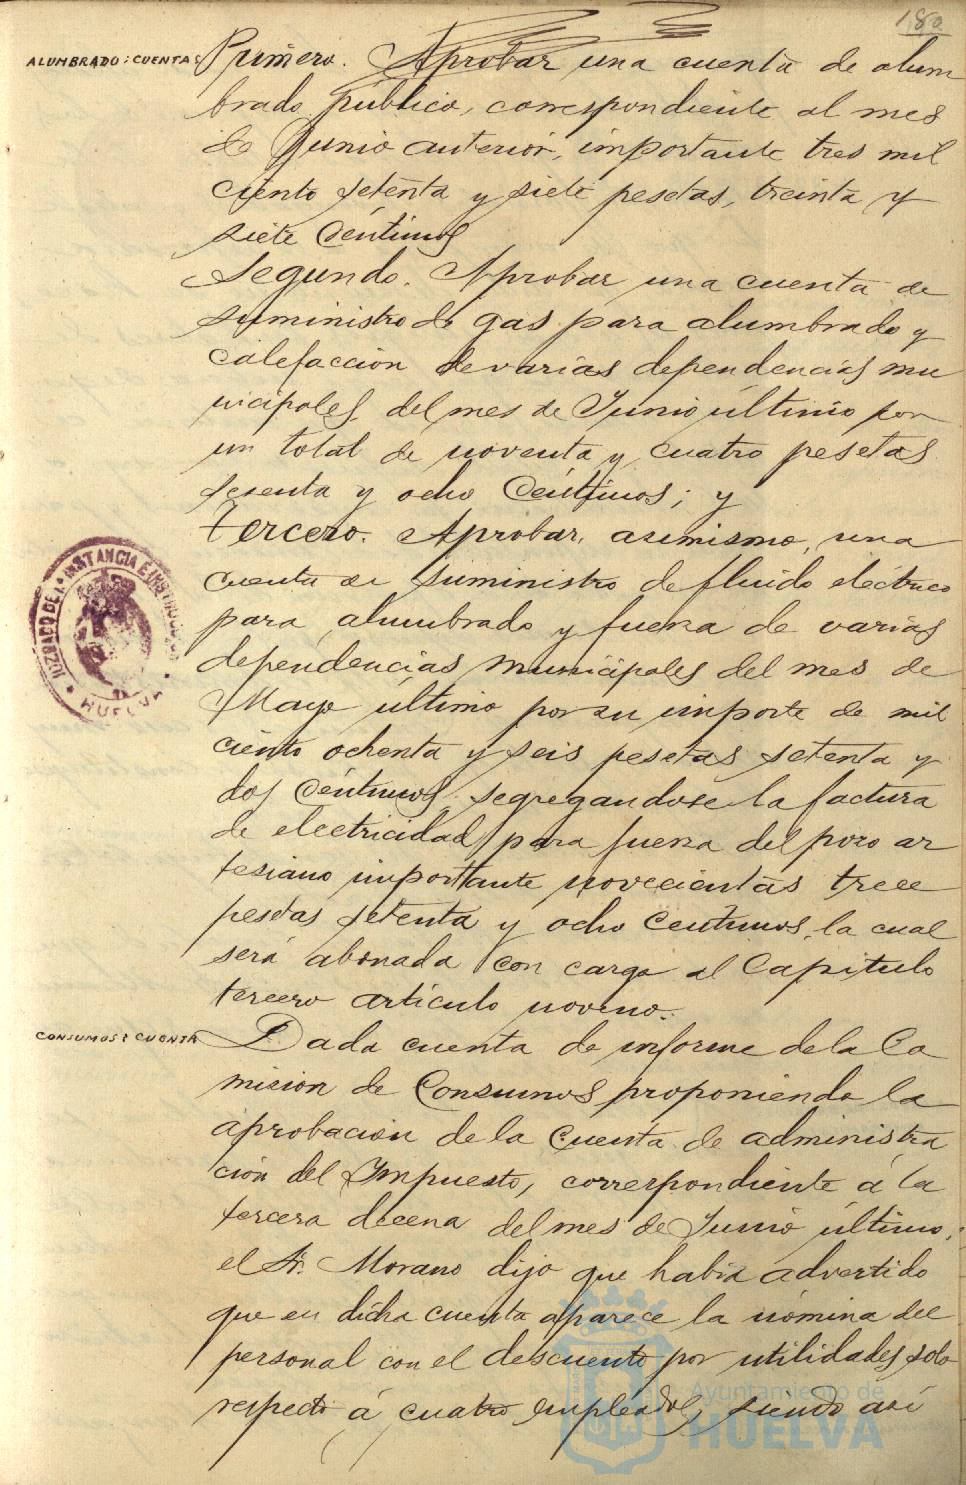 180
ALUMBRADO: CUENTAS
Primero. Aprobar una cuenta de alum
brado público, correspondiente al mes
de Junio anterior, importante tres mil
ciento setenta y siete pesetas, treinta y
siete céntimos
Segundo. Aprobar una cuenta de
suministro de gas para alumbrado y
calefacción de varias dependencias mu
nicipales, del mes de Junio último por
un total de noventa y cuatro pesetas
sesenta y ocho céntimos; y
Tercero. Aprobar, asimismo, una
cuenta de suministro de fluido eléctrico
para alumbrado y fuerza de varias
dependencias municipales del mes de
Mayo último por su importe de mil
ciento ochenta y seis pesetas setenta y
dos céntimos, segregandose la factura
de electricidad para fuerza del pozo ar
tesiano importante novecientas trece
pesetas setenta y ocho centimos, la cual
será abonada con cargo al Capitulo
tercero artículo noveno.
CONSUMOS: CUENTA
Dada cuenta de informe de la Co
mision de Consumos proponiendo la
aprobación de la cuenta de administra
ción del Impuesto, correspondiente á la
tercera decena del mes de Junio último,
el Sr. Morano dijo que había advertido
que en dicha cuenta aparece la nómina del
personal con el descuento por utilidades, solo
respecto á cuatro empleados, siendo así
JUZGADO DE 1ª INSTANCIA E INSTRUCCION
HUELVA
Ayuntamiento de
HUELVA